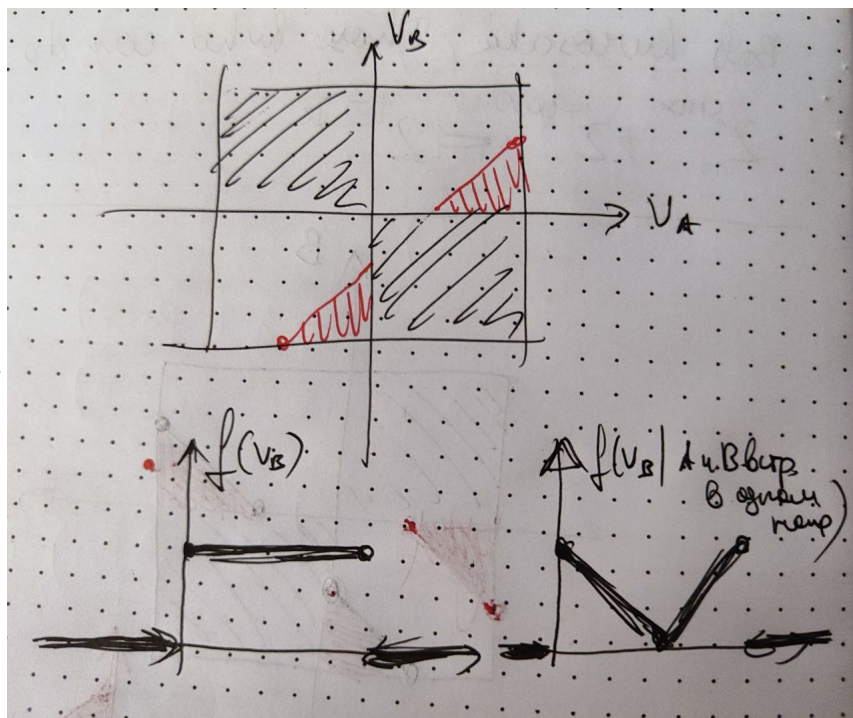 V_B
V_A
f(V_B)
f(V_B| А и В встр.
в одном
напр)